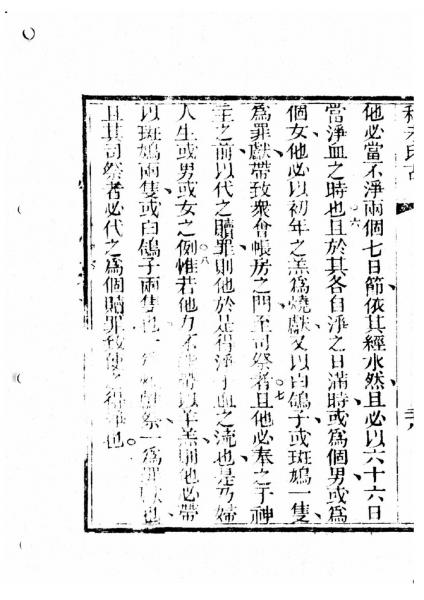 他必當不淨兩個七日節依其經水然且必以六十六日
當淨血之時也且於其各自淨之日滿時或爲個男或爲
個女他必以初年之羔爲燒獻又以白鴿子或斑鳩一隻
爲罪獻帶致衆會帳房之門至司祭者且他必奉之于神
主之前以代之贖罪則他於是得淨于血之流也是乃婦
人生或男或女之例惟若他力不能帶以羊羔則他必帶
以斑鳩兩隻或白鴿子兩隻也一爲燒祭一爲罪獻也
且其司祭者必代之爲個贖罪致使之得淨也
六
七
八